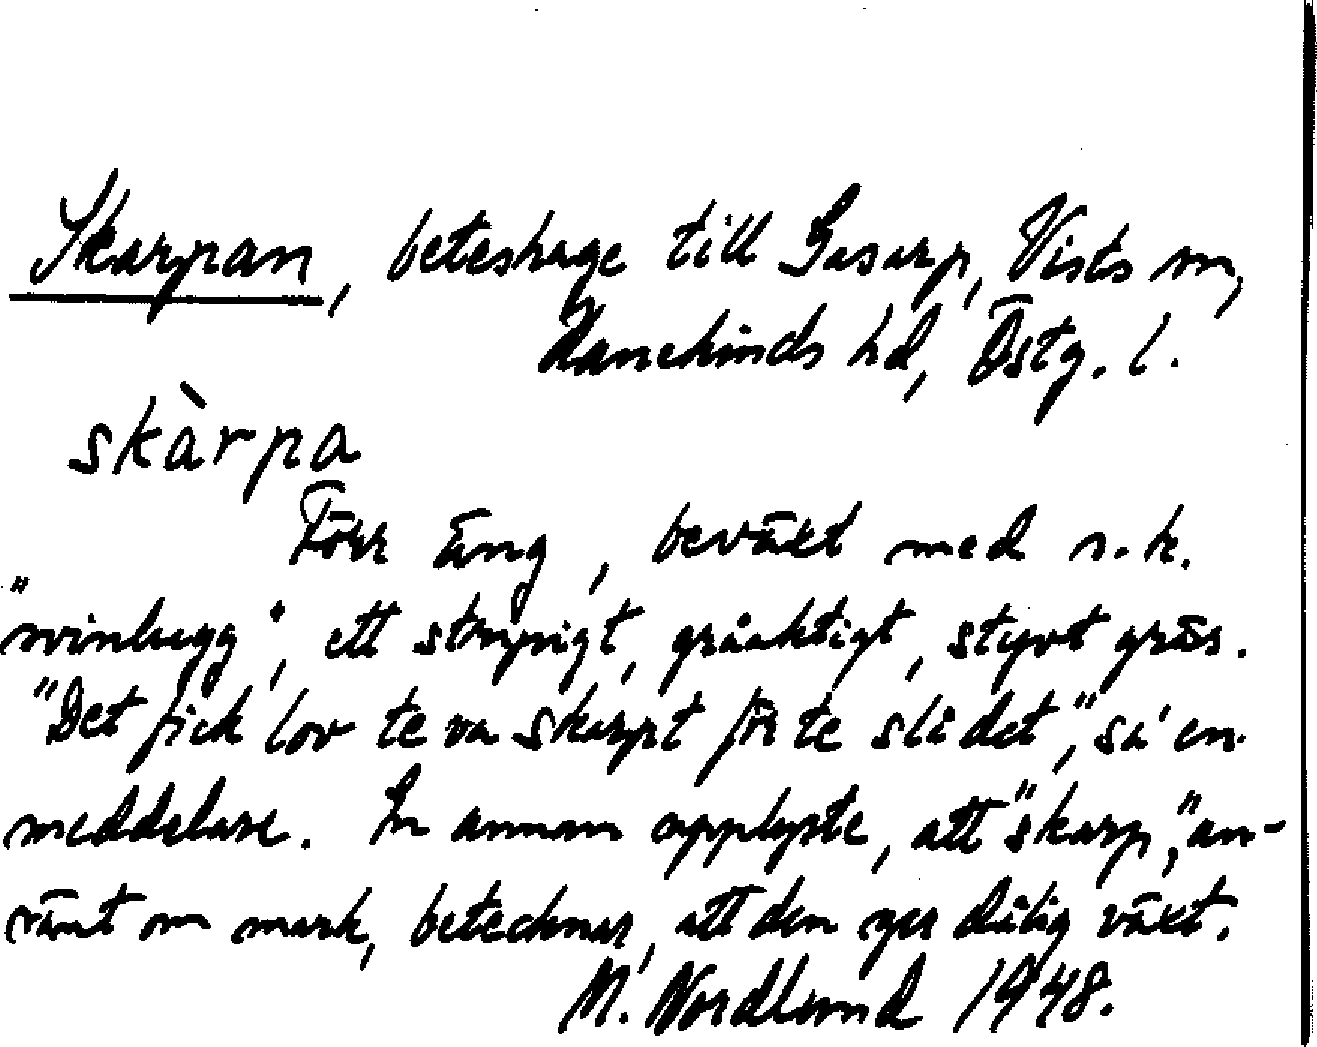 Skarpan, beteshage till Gasarp, Vists sn,
Hanekinds hd, Östg. l.
skàrpa
Förr äng, beväxt med s.k.
"svinlugg", ett strypigt, gråaktigt, styvt gräs.
"Det fick lov te va skarpt för te slå det," sa' en
meddelare. En annan upplyste, att "skarp," an-
vänt om mark, betecknar, att den ger dålig växt.
M. Nordlund 1948.